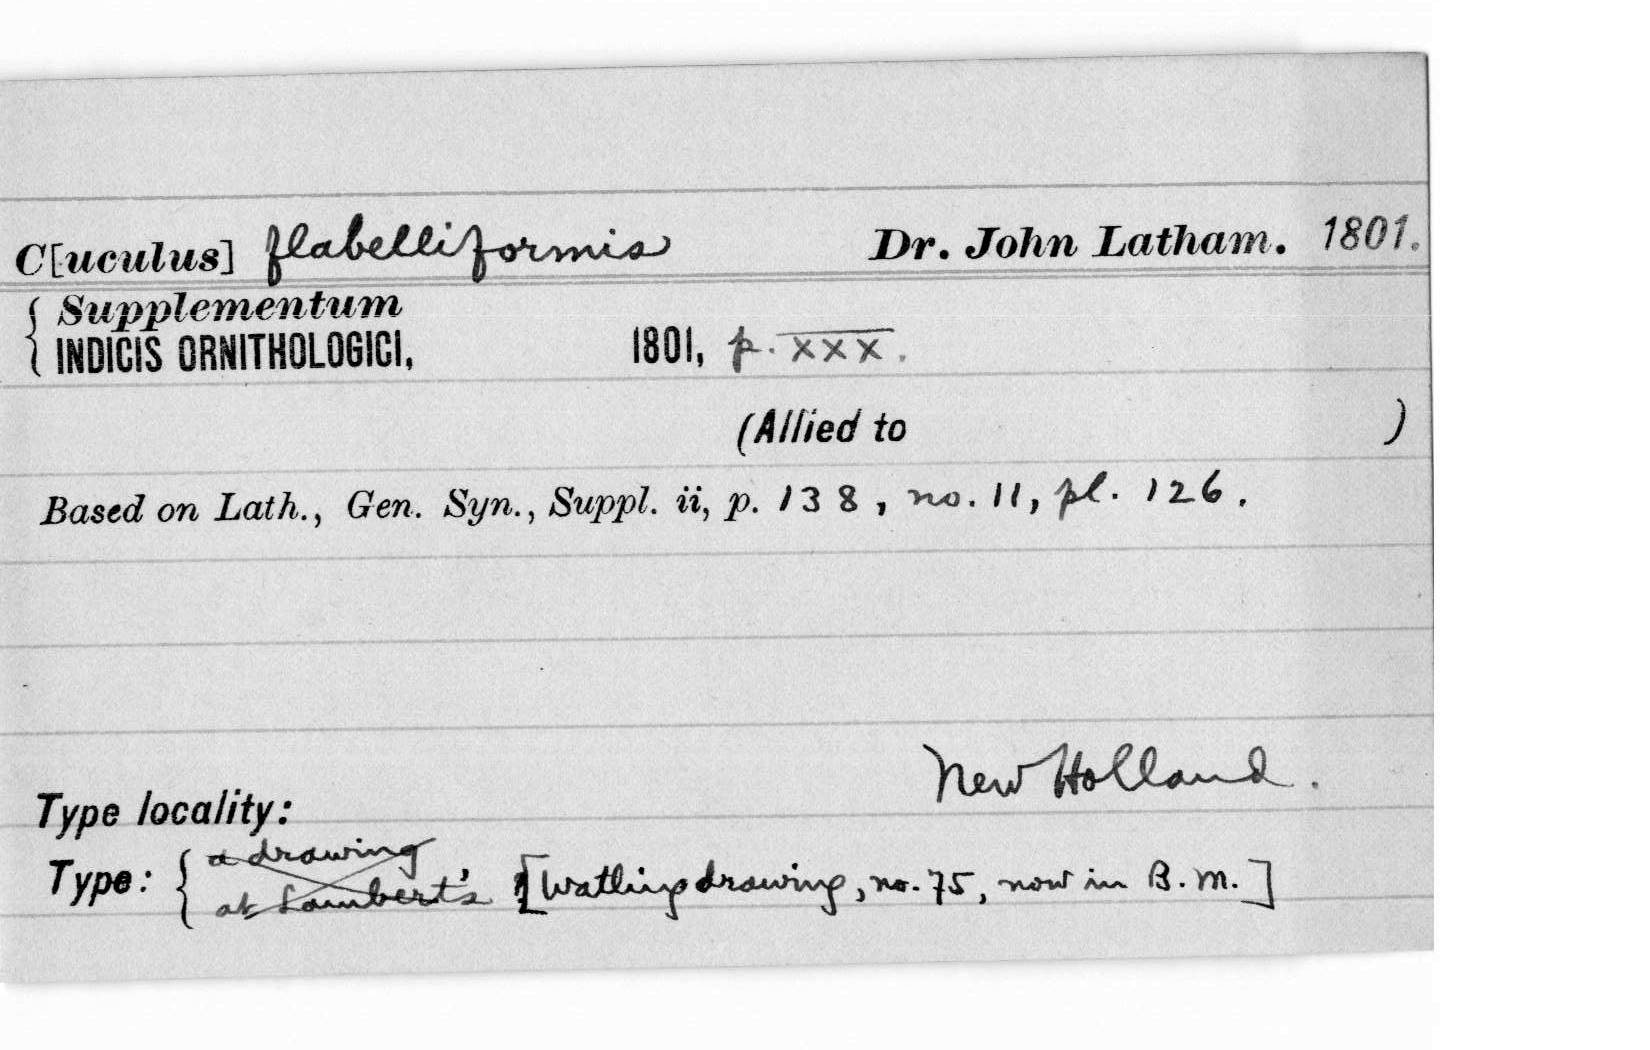 C[uculus] flabelliformis Dr. John Latham. 1801.
Supplementum
INDICIS ORNITHOLOGICI, 1801, p. xxx.
(Allied to )
Based on Lath., Gen. Syn., Suppl. ii, p. 138, no. 11, pl. 126.
New Holland.
Type locality:
Type: a drawing
at Lambert's [Watling drawing, no. 75, now in B.M.]